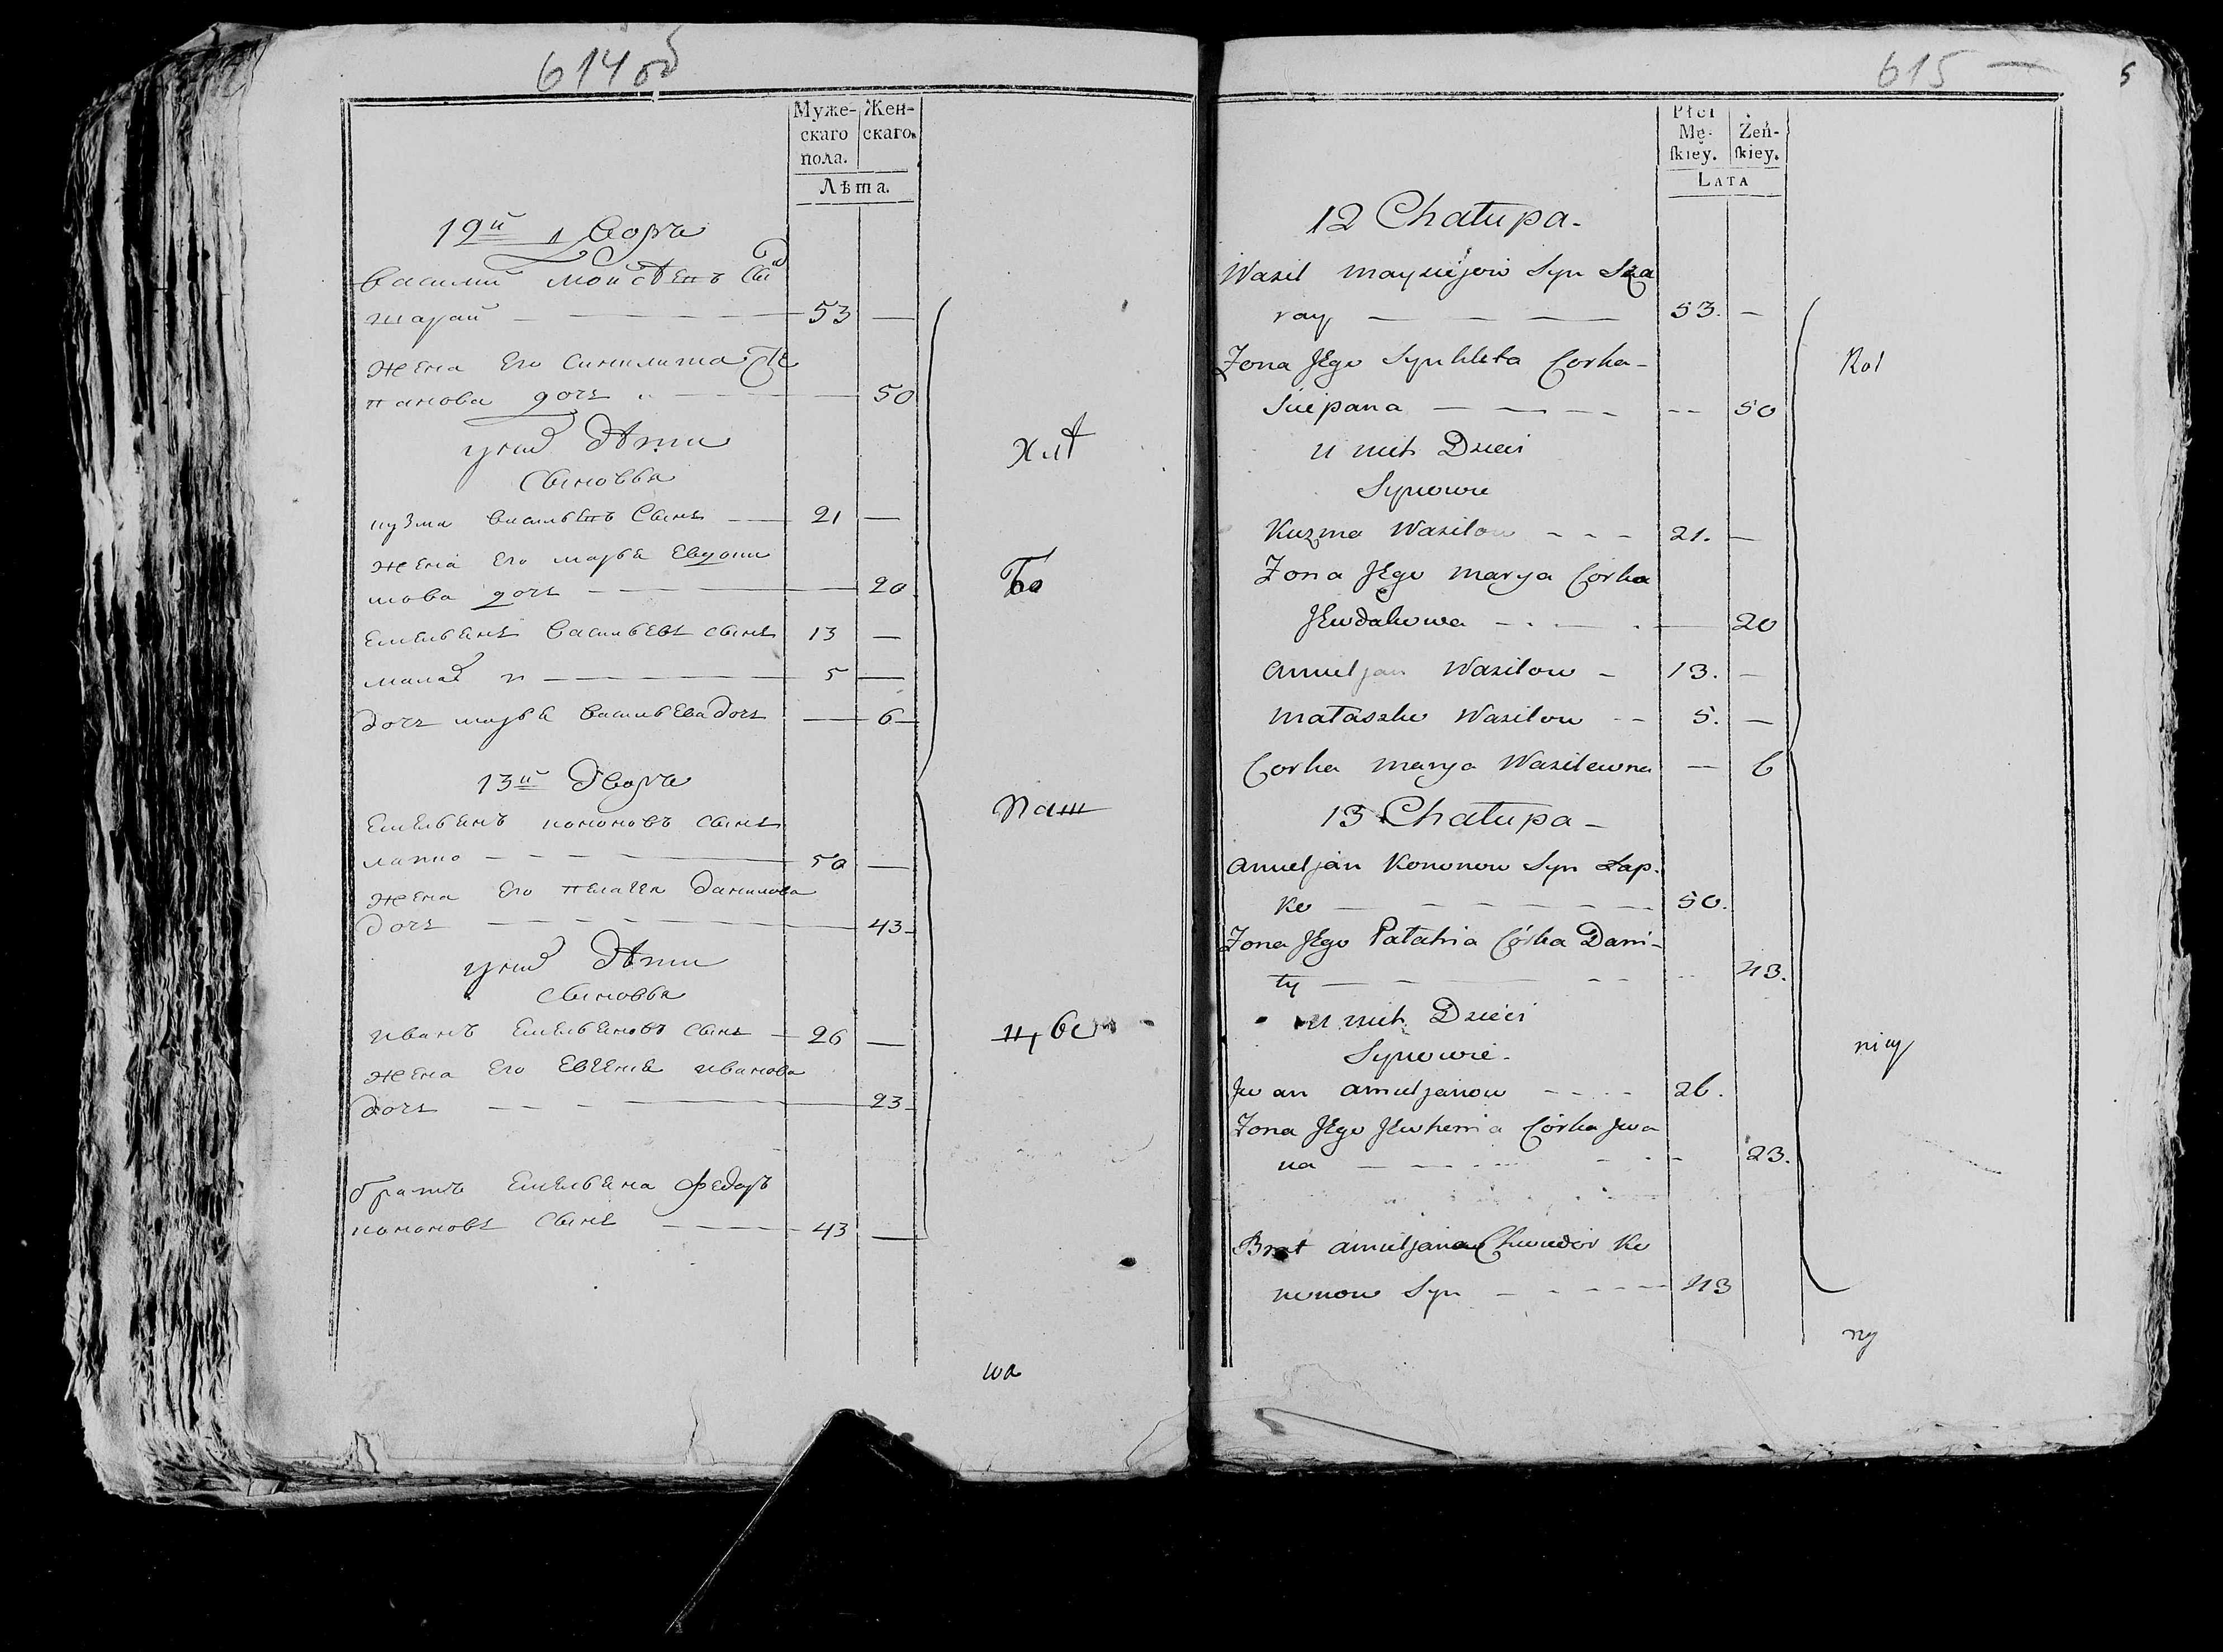 614 об
Муже- Жен-
скаго скаго.
пола.
Лѣта.
12й Дворъ
Василий Моисѣевъ Сы
Шарай 53 —
Жена Его Синклита Сте
панова дочь — 50
у них дѣти
Сыновья
Кузма Васильевъ Сынъ 21 —
Жена Его Марья Евдоки
мова дочь — 20
Емельянъ Васильевъ сынъ 13 —
5 —
дочь Марья Васильева дочь — 6
13й Дворъ
Емельянъ Кононовъ сынъ
Лапко 50 —
Жена Его Пелагея Данилова
дочь — 43
у них дѣти
Сыновья
Иванъ Емельяновъ Сынъ 26 —
Жена Его Евгения Иванова
дочь — 23
братъ Емельяна Федоръ
Кононовъ Сынъ 43 —
Хлѣ
бо
Паш
цы
615 —
5
Płci
Mę- Żeń-
skiey. skiey.
LATA
12 Chałupa -
Wasil Maysiejow Syn Sza
ray 53. —
Żona Jego Synkleta Corka -
Sciepana — 50
U nich Dzieci
Synowie
Kuzma Wasilow 21. —
Żona Jego Marya Corka
Jewdakowa — 20
Amieljan Wasilow 13. —
Małaszko Wasilow 5. —
Corka Marya Wasilewna — 6
13 Chałupa -
Amieljan Kononow Syn Łap-
ko 50.
Żona Jego Pałahia Córka Dani-
ły 43.
U nich Dzieci
Synowie -
Jwan Amieljanow 26.
Żona Jego Jewhenia Córka Jwa
na 23.
Brat Amieljana Chwiedor Ko
nonow Syn 43
Rol
nicy